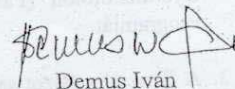 Demus Iván